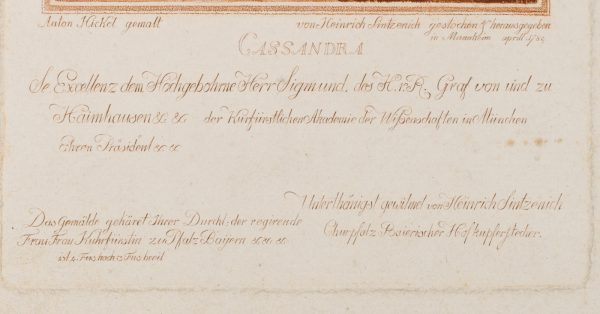 Anton Hickel gemalt
von Heinrich Sintzenich gestochen & herausgegeben
in Mannheim april 1789
CASSANDRA
Se Excellenz dem Hochgebohrne Herr Sigmund, des H.r.R. Graf von und zu
Haimhausen &c &c der Kurfürstlichen Akademie der Wissenschaften in München
Ehren Präsident &c &c
Unterthänigst gewidmet von Heinrich Sintzenich
Churpfalz Baierischer Hofkupferstecher.
Das Gemälde gehöret Ihrer Durchl: der regirende
Frau Frau Kuhrfürstin zu Pfalz Bayern &c &c &c
ist 4 Fus hoch 3 Fus breit